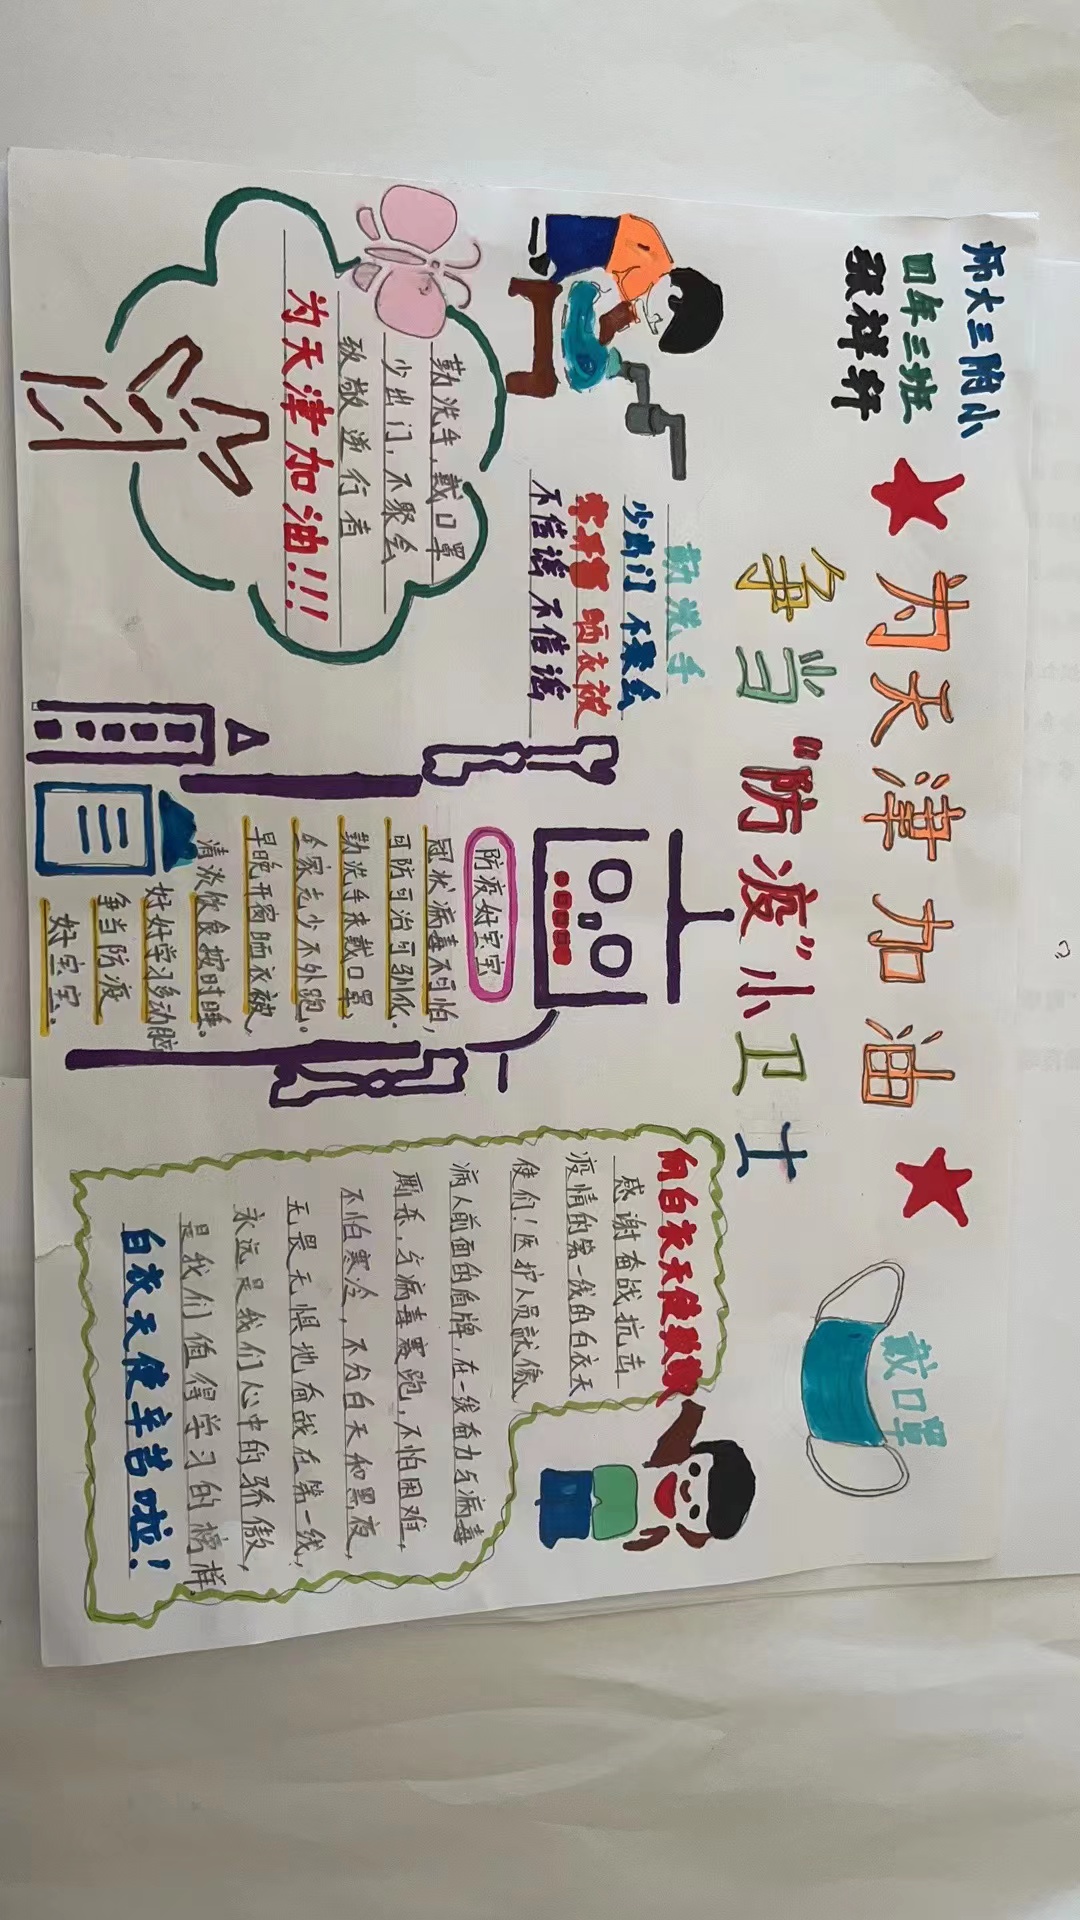 师大三附小
四年三班
张梓轩
为天津加油
争当“防疫”小卫士
戴口罩
勤洗手
少出门 不聚会
常开窗 晒衣被
不信谣 不信谣
勤洗手，戴口罩
少出门，不聚会
致敬逆行者
为天津加油!!!
防疫好宝宝
冠状病毒不可怕，
可防可治可驯化。
勤洗手来戴口罩
全家老少不外跑。
早晚开窗晒衣被
清淡饮食按时睡。
好好学习多动脑
争当防疫
好宝宝。
向白衣天使致敬
感谢奋战抗击
疫情的第一线的白衣天
使们！医护人员就像
病人前面的盾牌，在一线奋力与病毒
厮杀，与病毒赛跑，不怕困难，
不怕寒冷，不分白天和黑夜，
无畏无惧地奋战在第一线，
永远是我们心中的骄傲，
是我们值得学习的榜样
白衣天使辛苦啦！